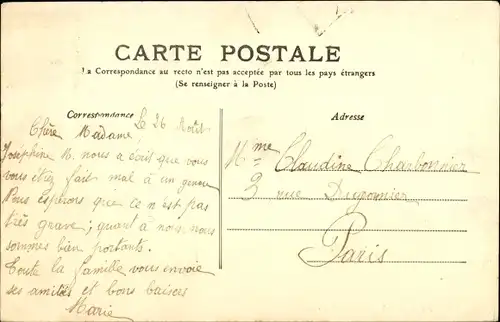 CARTE POSTALE
La Correspondance au recto n'est pas acceptée par tous les pays étrangers
(Se renseigner à la Poste)
Correspondance
Adresse
Le 26 Août
Chère Madame,
Joséphine M. nous a écrit que vous
vous étiez fait mal à un genou
Nous espérons que ce n'est pas
très grave; quant à nous nous
sommes bien portants.
Toute la famille vous envoie
ses amitiés et bons baisers
Marie
Mme Claudine Charbonnier
2 rue Dugommier
Paris